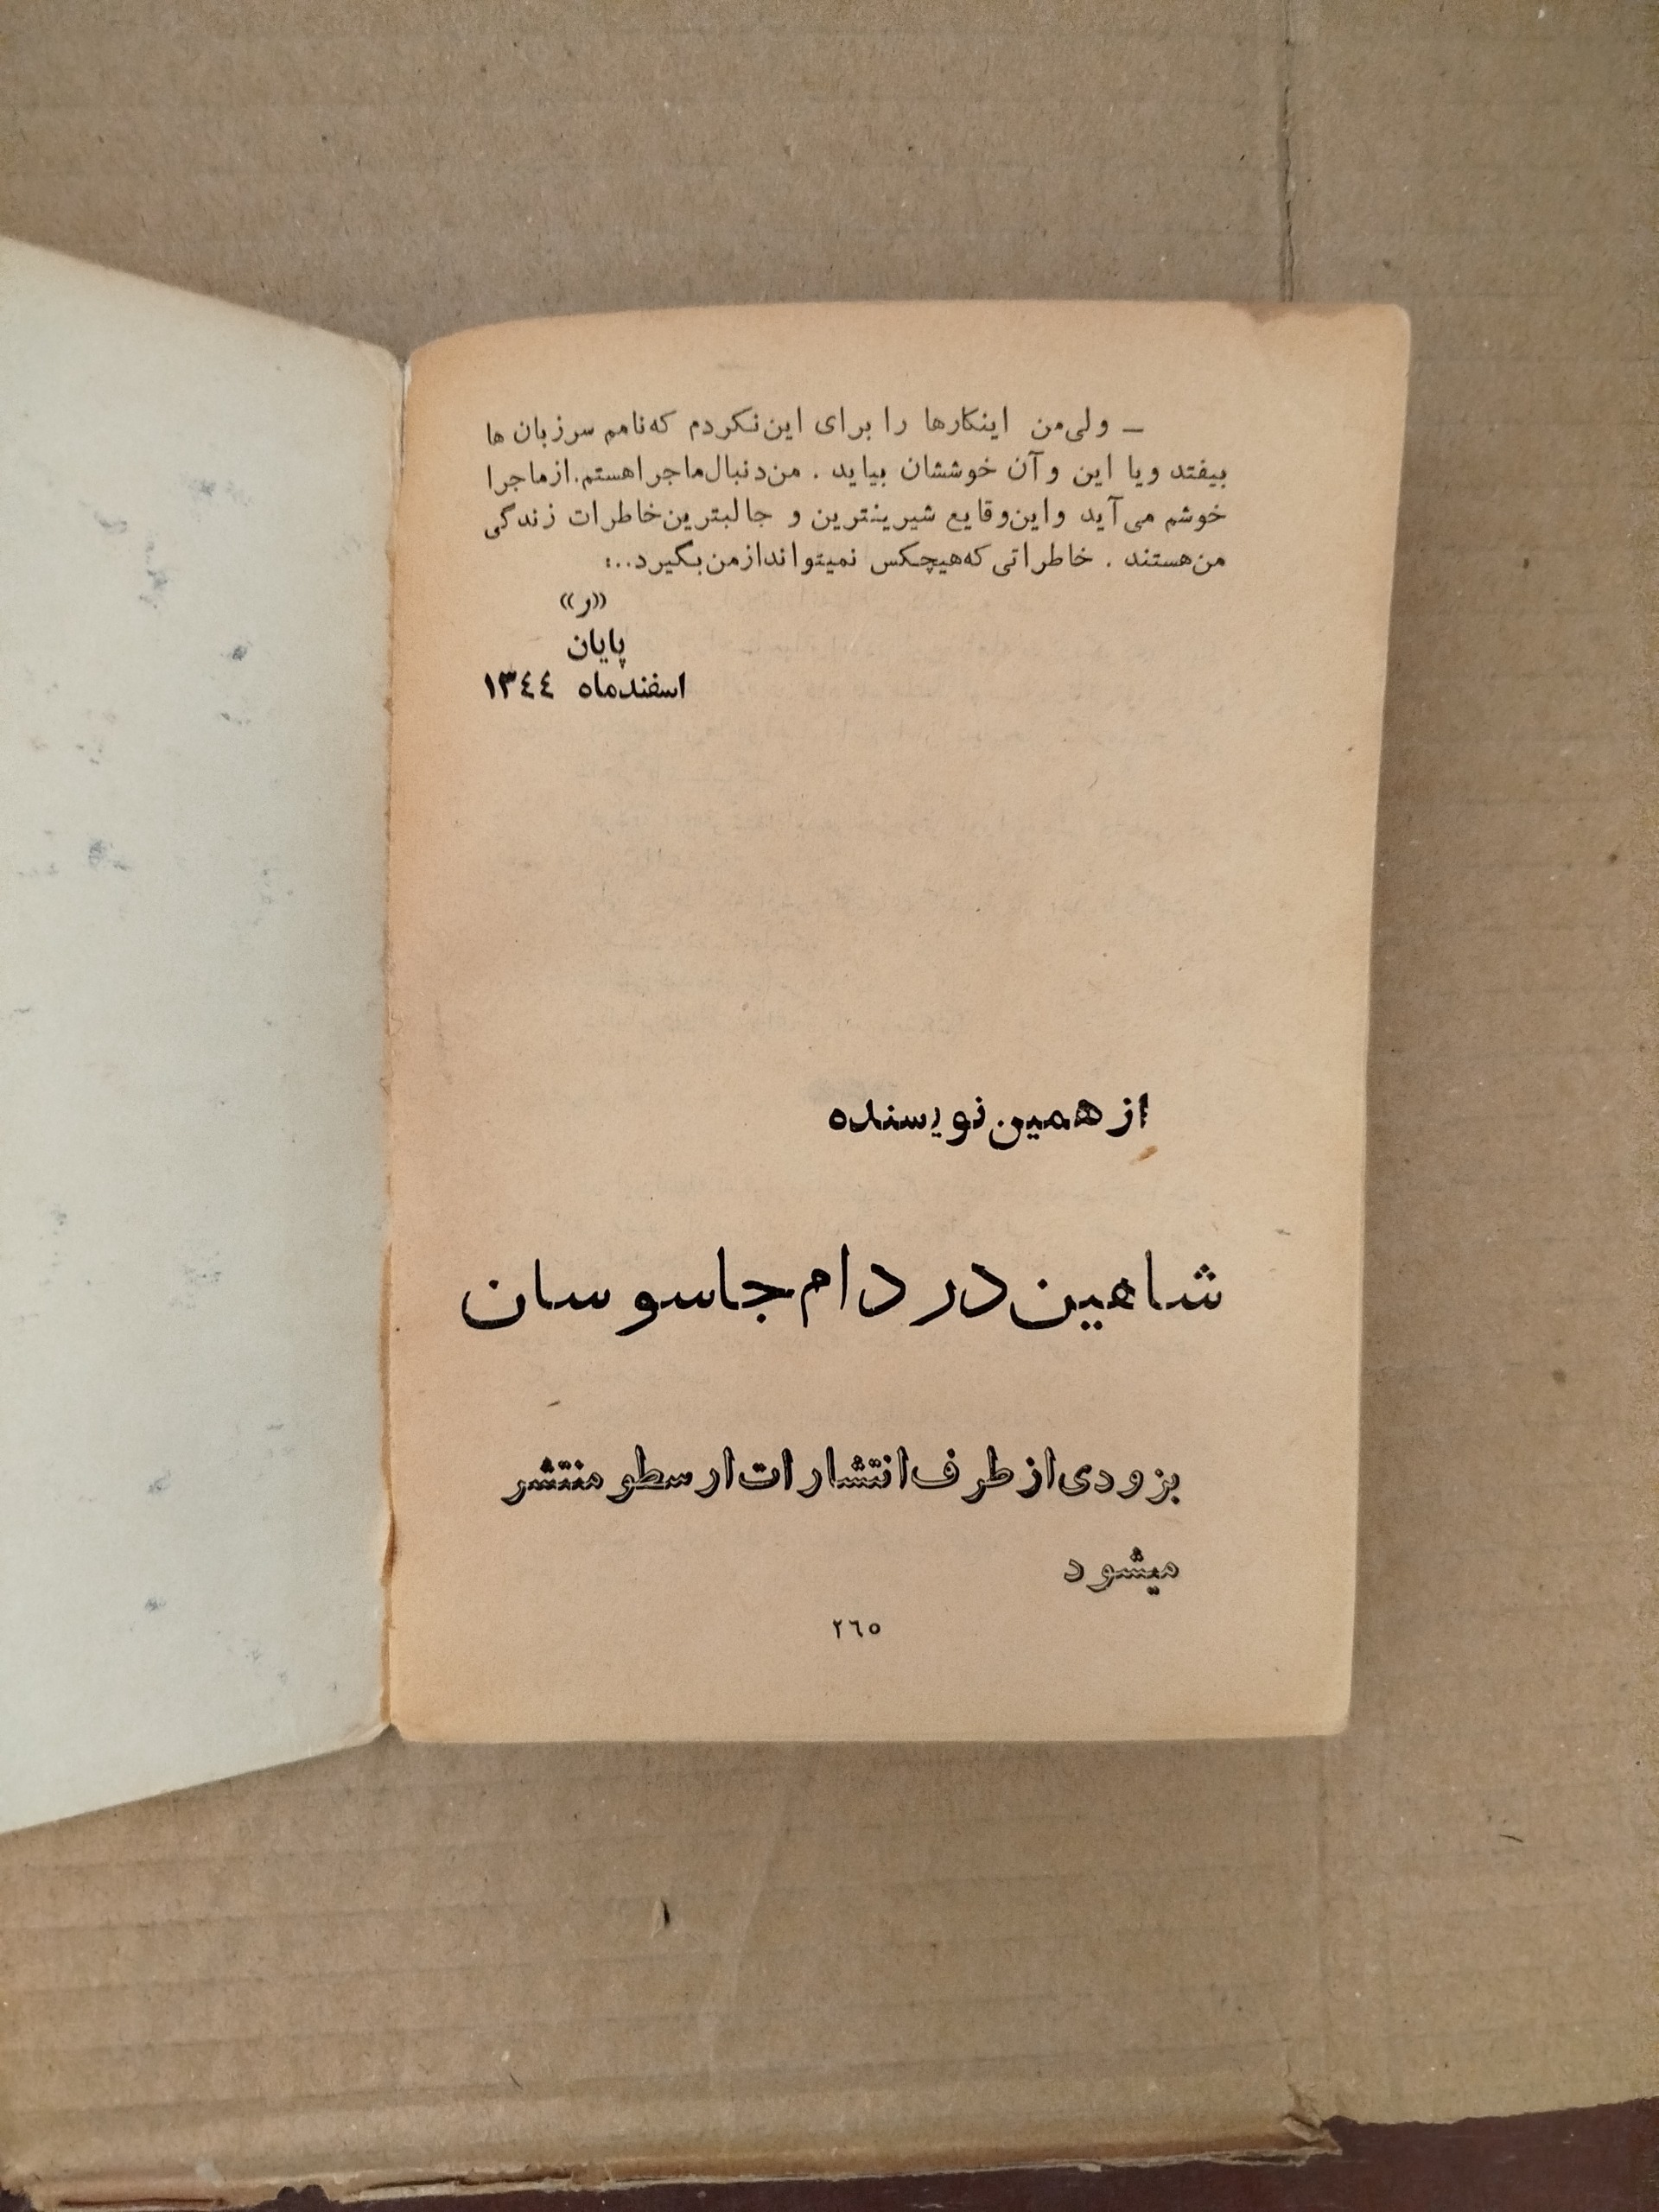 ـ ولی‌من اینکارها را برای این‌نکردم که‌نامم سرزبان ها
بیفتد ویا این وآن خوششان بیاید . من‌دنبال‌ماجراهستم.ازماجرا
خوشم می‌آید واین‌وقایع شیرینترین و جالبترین‌خاطرات زندگی
من‌هستند . خاطراتی که‌هیچکس نمیتواندازمن‌بگیرد..:
«ر»
پایان
اسفندماه ۱۳٤٤
از همین نویسنده
شاهین در دام جاسوسان
بزودی از طرف انتشارات ارسطو منتشر
میشود
۲٦٥